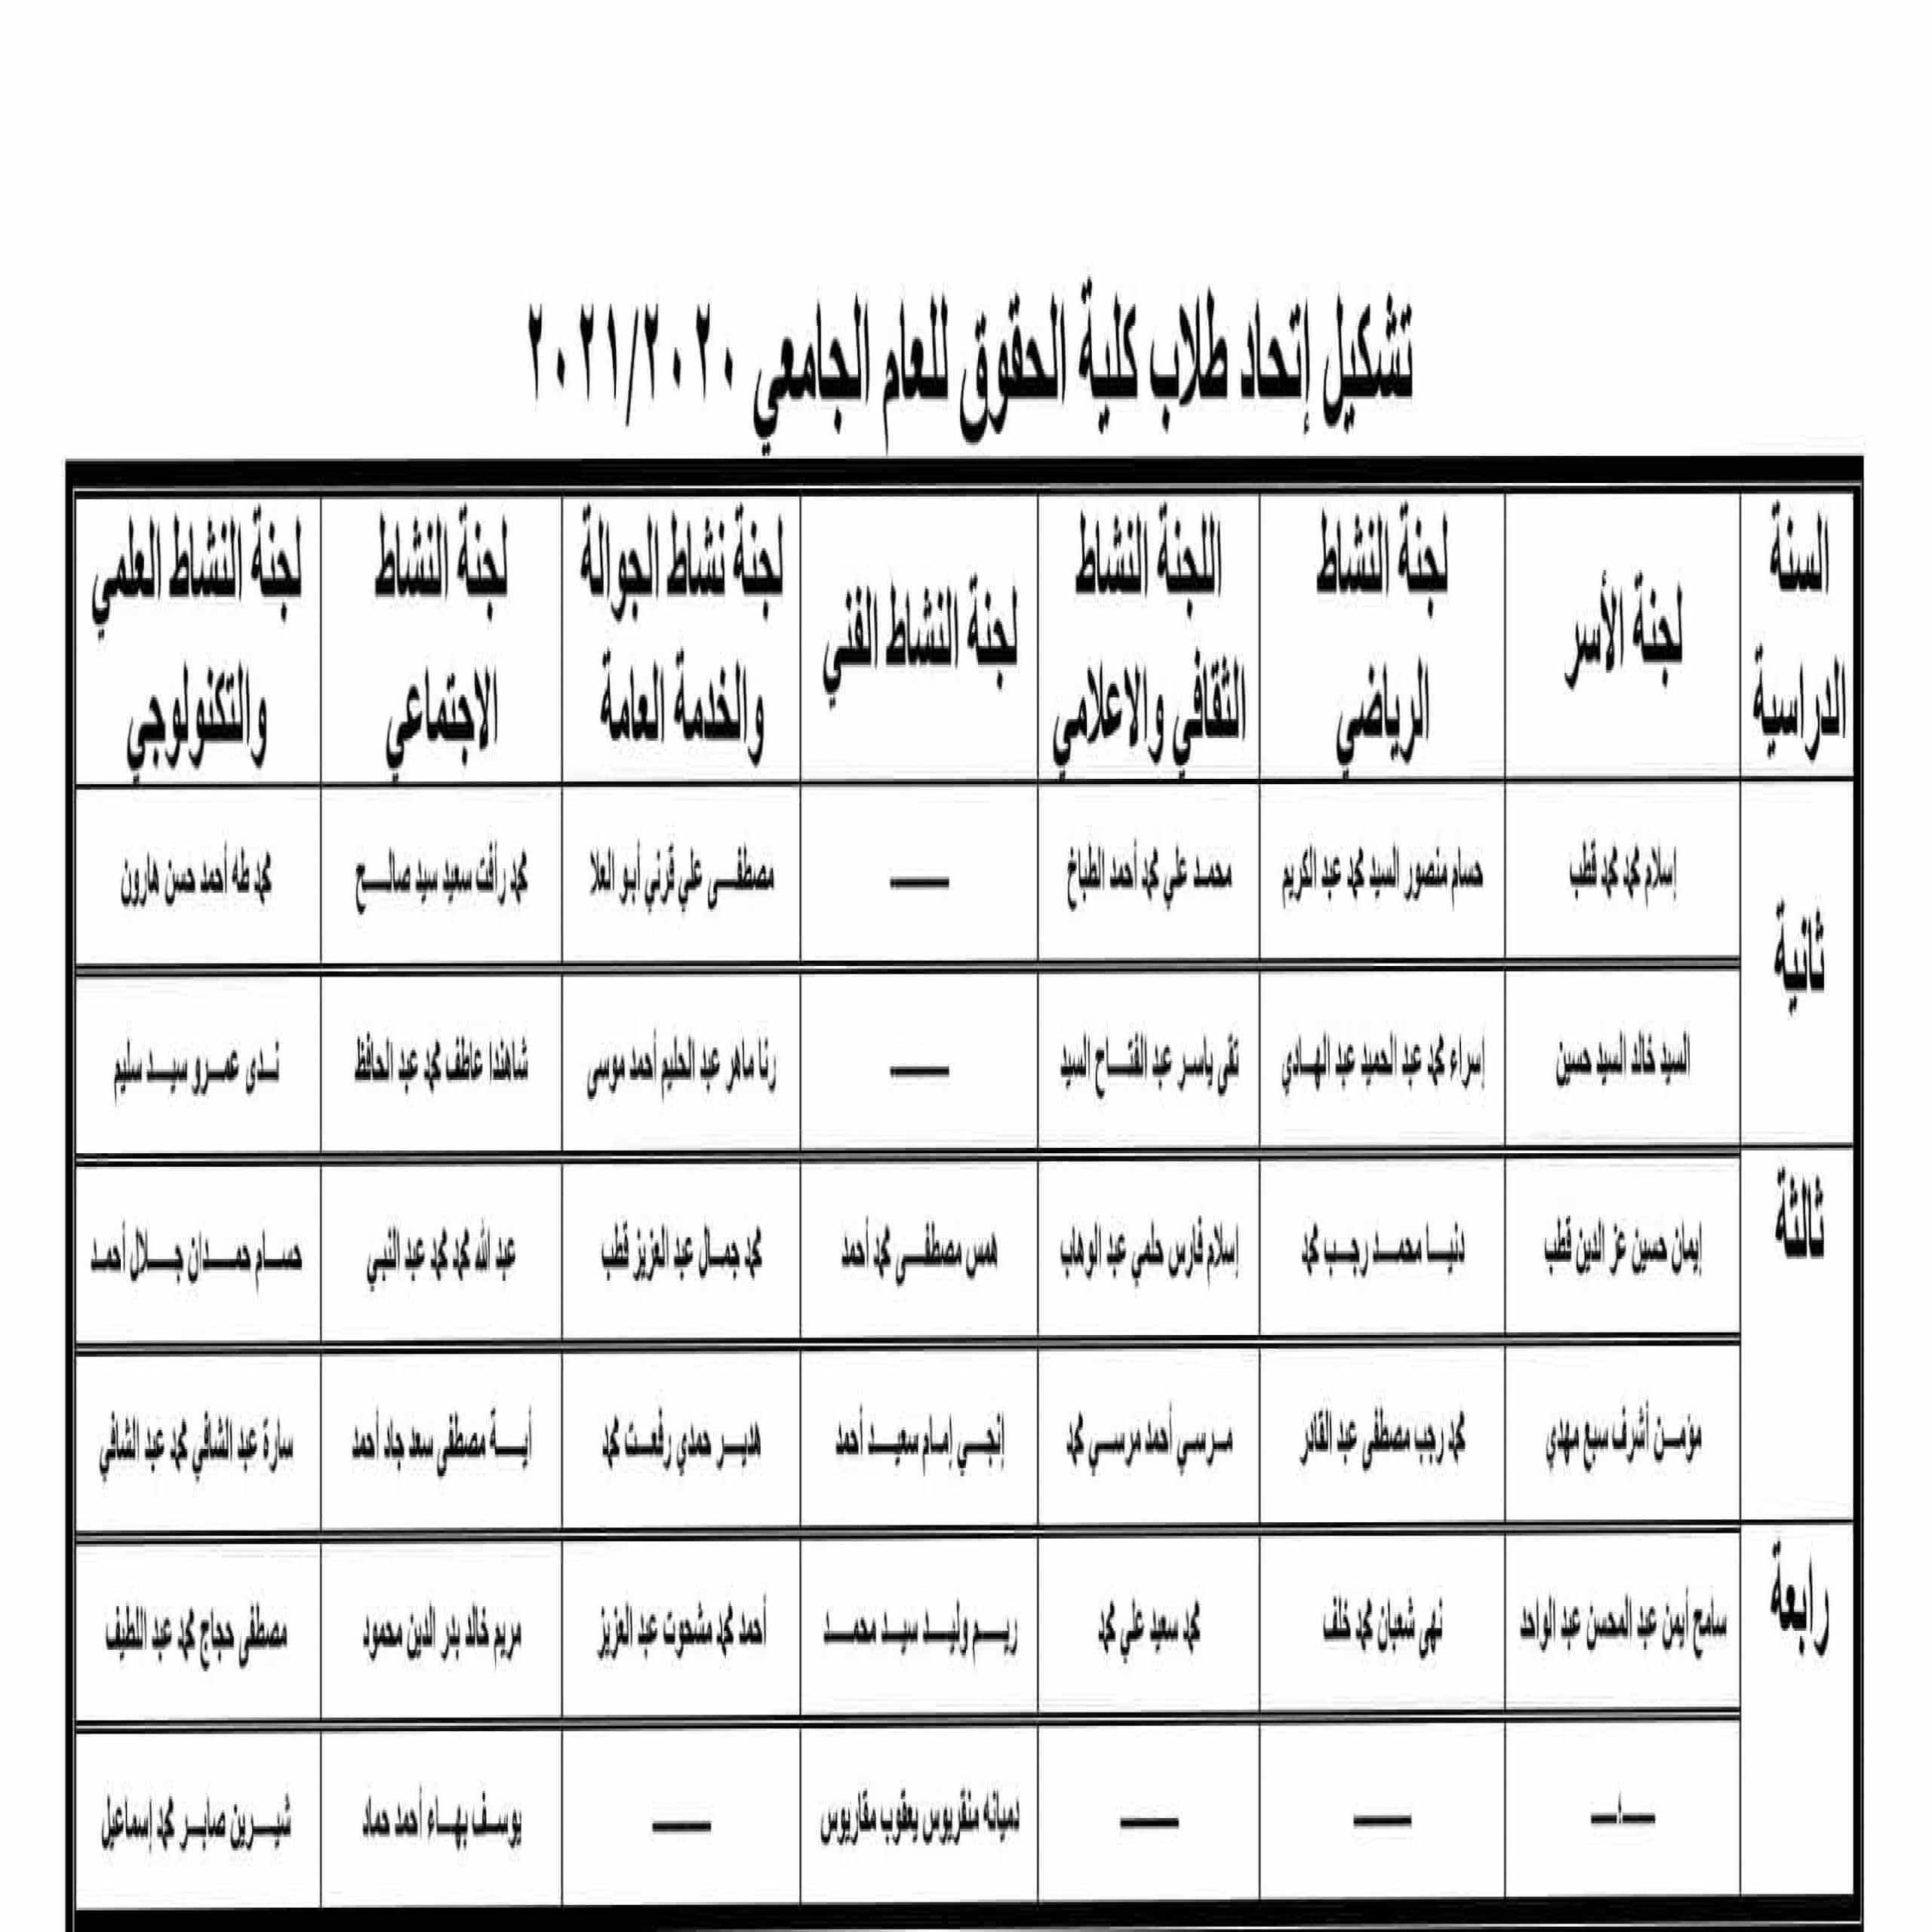 تشكيل إتحاد طلاب كلية الحقوق للعام الجامعي ٢٠٢١/٢٠٢٠
السنة الدراسية
لجنة الأسر
لجنة النشاط الرياضي
اللجنة النشاط الثقافي والاعلامي
لجنة النشاط الفني
لجنة نشاط الجوالة والخدمة العامة
لجنة النشاط الاجتماعي
لجنة النشاط العلمي والتكنولوجي
ثانية
إسلام محمد محمد قطب
حسام منصور السيد محمد عبد الكريم
محمد علي محمد أحمد الطباخ
ــــــ
مصطفى علي قرني أبو العلا
محمد رأفت سعيد سيد صالح
محمد طه أحمد حسن هارون
السيد خالد السيد حسين
إسراء محمد عبد الحميد عبد الهادي
تقى ياسر عبد الفتاح السيد
ــــــ
رنا ماهر عبد الحليم أحمد موسى
شاهندا عاطف محمد عبد الحافظ
ندى عمرو سيد سليم
ثالثة
إيمان حسين عز الدين قطب
دنيا محمد رجب محمد
إسلام فارس حلمي عبد الوهاب
همس مصطفى محمد أحمد
محمد جمال عبد العزيز قطب
عبد الله محمد محمد عبد النبي
حسام حمدان جلال أحمد
مؤمن أشرف سبع مهدي
محمد رجب مصطفى عبد القادر
مرسي أحمد مرسي محمد
إنجي إمام سعيد أحمد
هدير حمدي رفعت محمد
أية مصطفى سعد جاد أحمد
سارة عبد الشافي محمد عبد الشافي
رابعة
سامح أيمن عبد المحسن عبد الواحد
نهى شعبان محمد خلف
محمد سعيد علي محمد
ريم وليد سيد محمد
أحمد محمد مشحوت عبد العزيز
مريم خالد بدر الدين محمود
مصطفى حجاج محمد عبد اللطيف
ــــــ
ــــــ
ــــــ
دميانه منقريوس يعقوب مقاريوس
ــــــ
يوسف بهاء أحمد حماد
شيرين صابر محمد إسماعيل